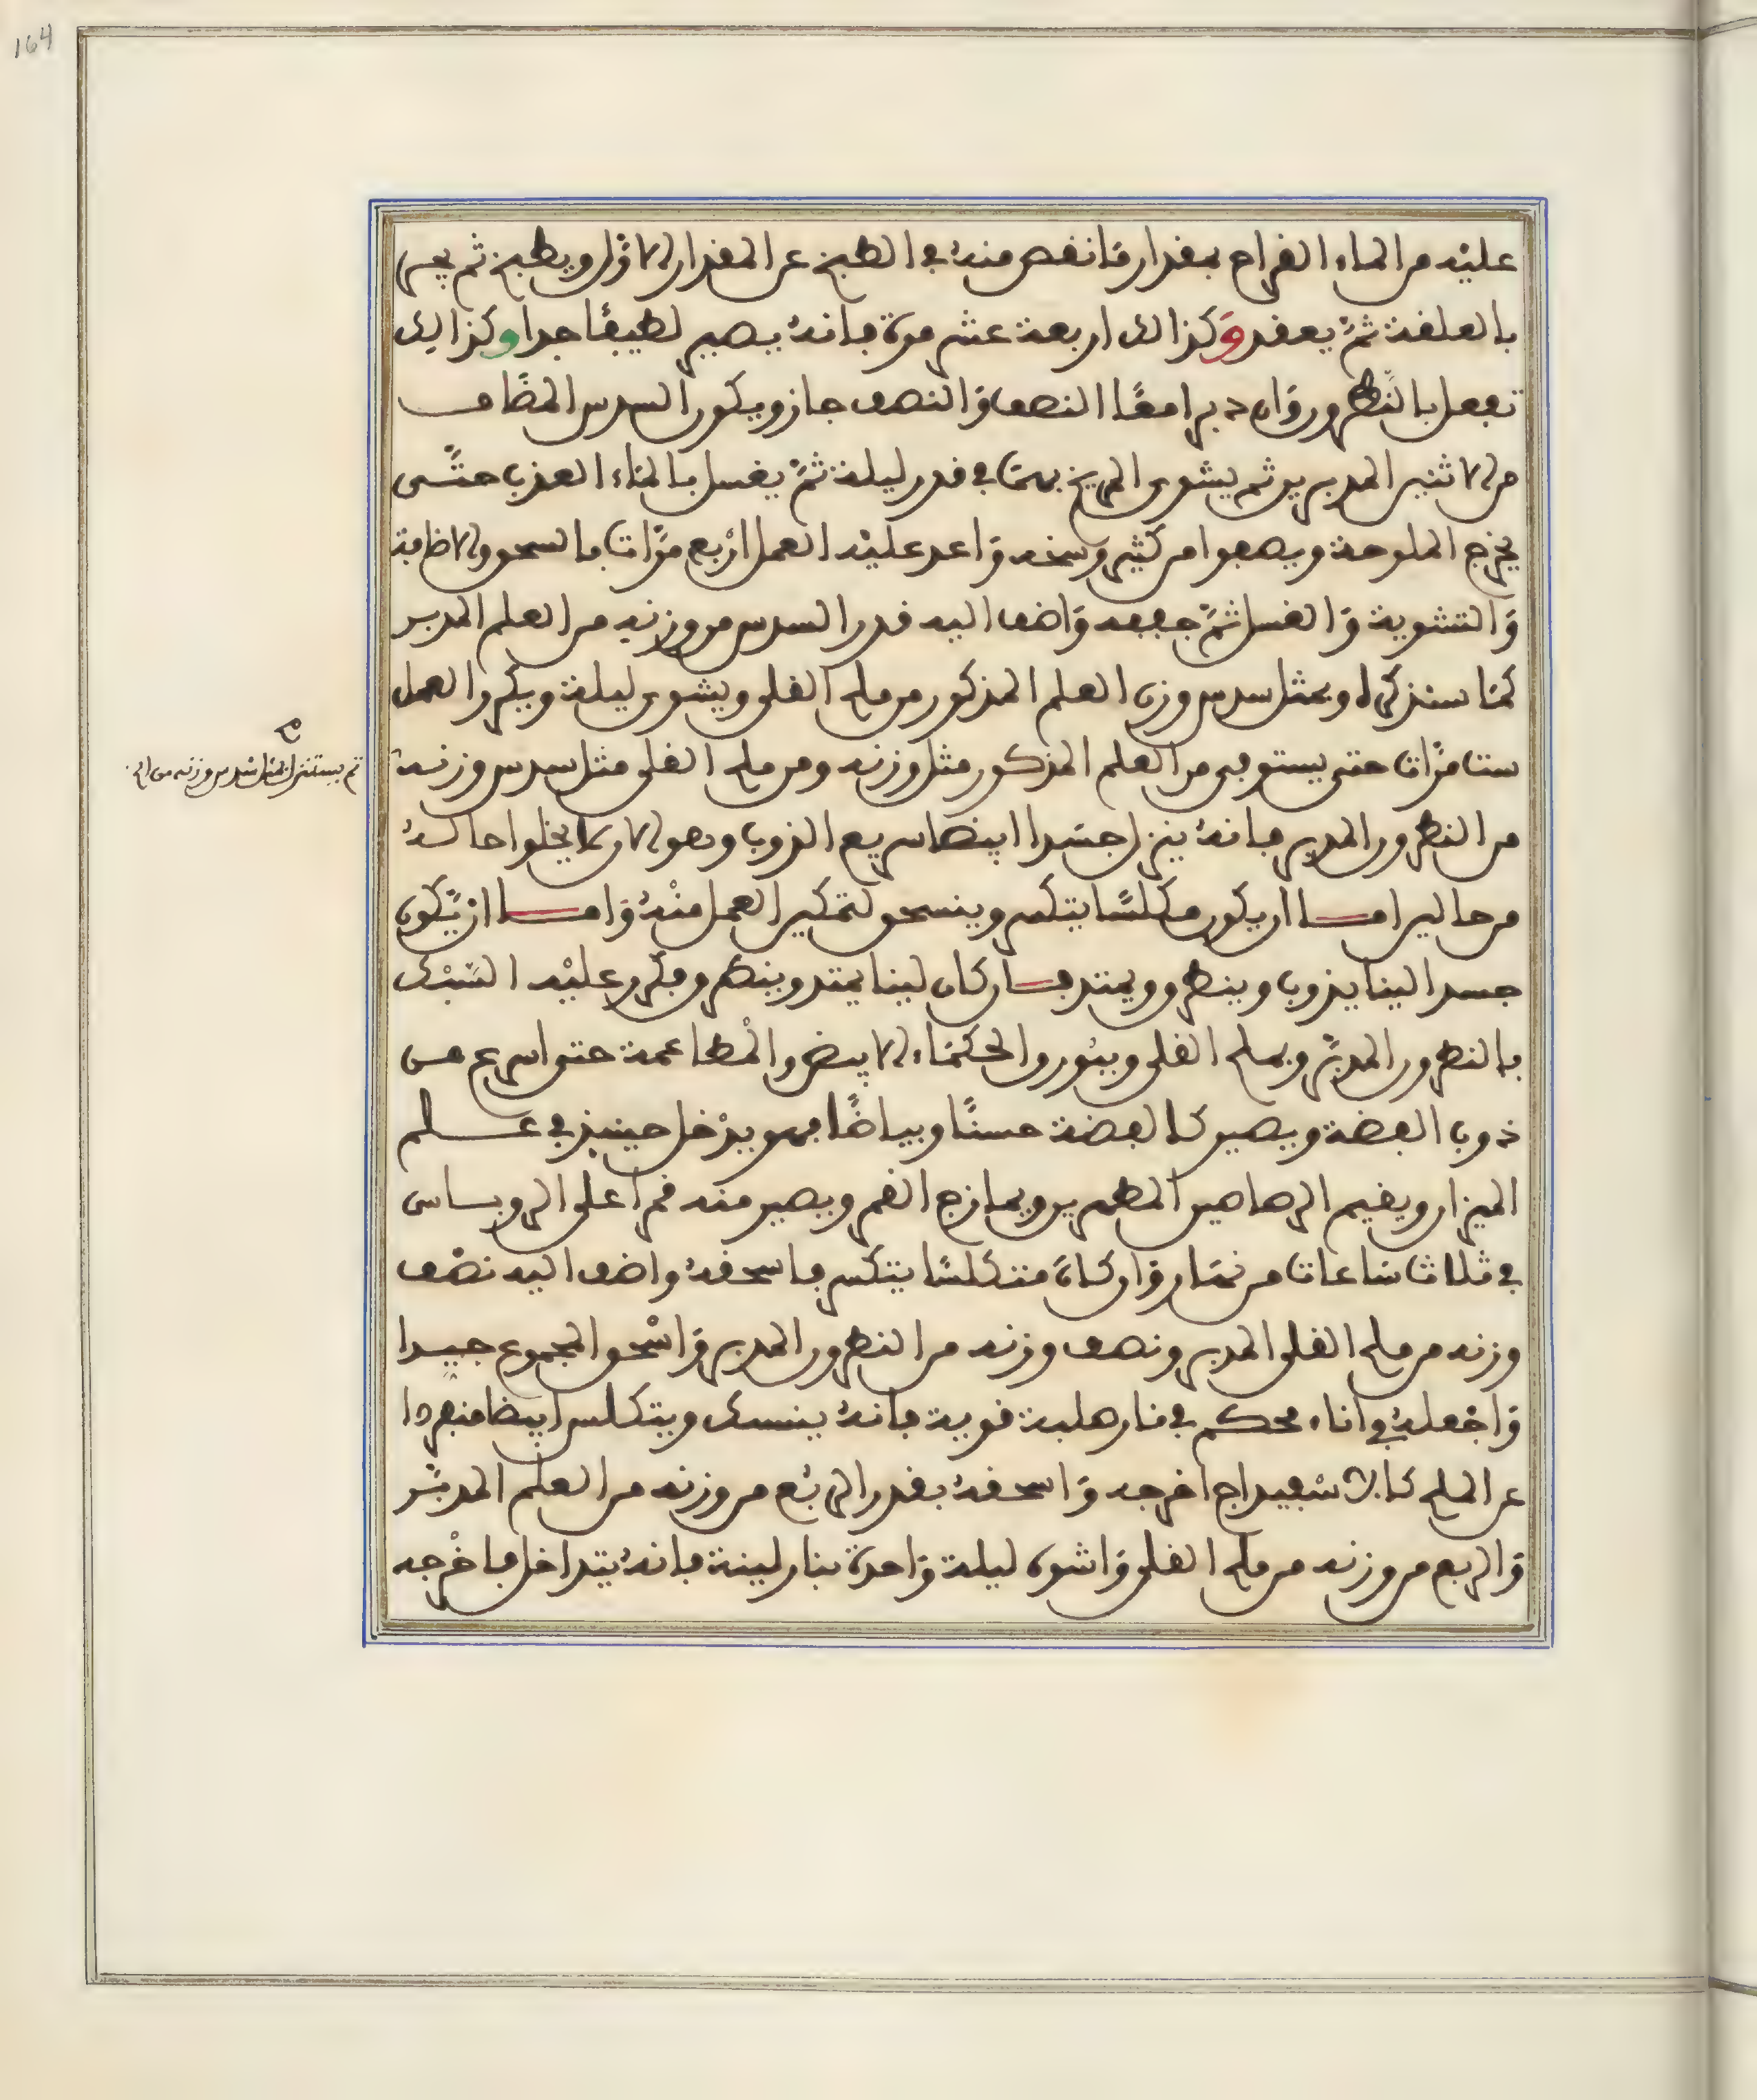 164
عليه من الماء القراح بمقدار ما نقص منه في الطبخ عن المقدار الاول ويطبخ ثم يجر
بالعلقة ثم يعقد وكذالك اربعة عشر مرة فانه يصير لطيفا جدا وكذالك
تفعل بالنطرون وان دبرا معا النصف والنصف جاز ويكون السدس المضاف
من الاثنين المدبرين ثم يشوى المريخ بهما في قدر ليلة ثم يغسل بالماء العذب حتى
يخرج الملوحة ويصفوا من كثير وسخه واعد عليه العمل اربع مرات بالسحق والاضافة
والتشوية والغسل ثم جففه واضف اليه قدر السدس من وزنه من العلم المدبر
كما سنذكره وبمثل سدس وزن العلم المذكور من ملح القلى ويشوى ليلة ويكرر العمل
ست مرات حتى يستوفى من العلم المذكور مثل وزنه ومن ملح القلى مثل سدس وزنه
ثم يستنزل بمثل سدس وزنه من الح
من النطرون المدبر فانه ينزل جسدا ابيضا سريع الذوب وهو الان لا يخلوا حاله
من حالين اما ان يكون مكلسا يتكسر وينسحق لتمكين العمل منه واما ان يكون
جسدا لينا يذوب وينطرق ويمتد فان كان لينا يمتد وينطرق فكرر عليه السبك
بالنطرون المدبر وبملح القلى وببورق الحكماء الابيض والمطاعمة حتى اسرع من
ذوب الفضة ويصير كالفضة حسنا وبياضا فهو يدخل حينيذ في علم
الميزان ويقيم الرصاصين المطهرين ويمازج القمر ويصير منه قمرا على الروباس
في ثلاث ساعات من نهار وان كان متكلسا يتكسر فاسحقه واضف اليه نصف
وزنه من ملح القلى المدبر ونصف وزنه من النطرون المدبر واسحق المجموع جيدا
واجعله في اناء محكم في نار صلبة قوية فانه ينسبك ويتكلس ابيضا منفردا
عن الملح كالاسفيداج اخرجه واسحقه بقدر الربع من وزنه من العلم المدبر
والربع من وزنه من ملح القلى واشوه ليلة واحدة بنار لينة فانه يتداخل فاخرجه